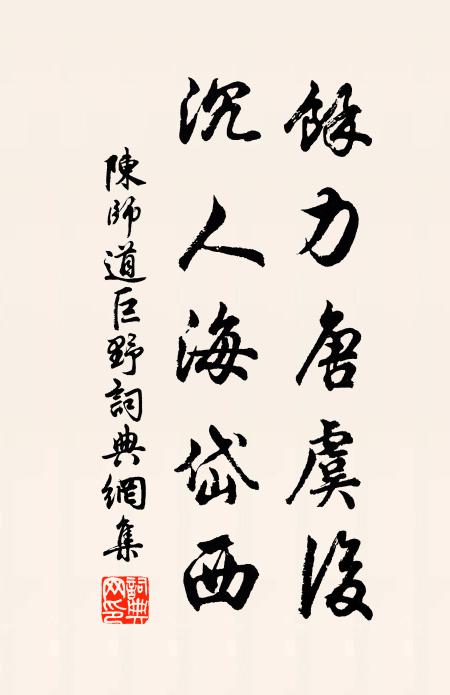 餘力唐虞後
沉人海岱西
陳師道巨野詞典網集
詞典网印